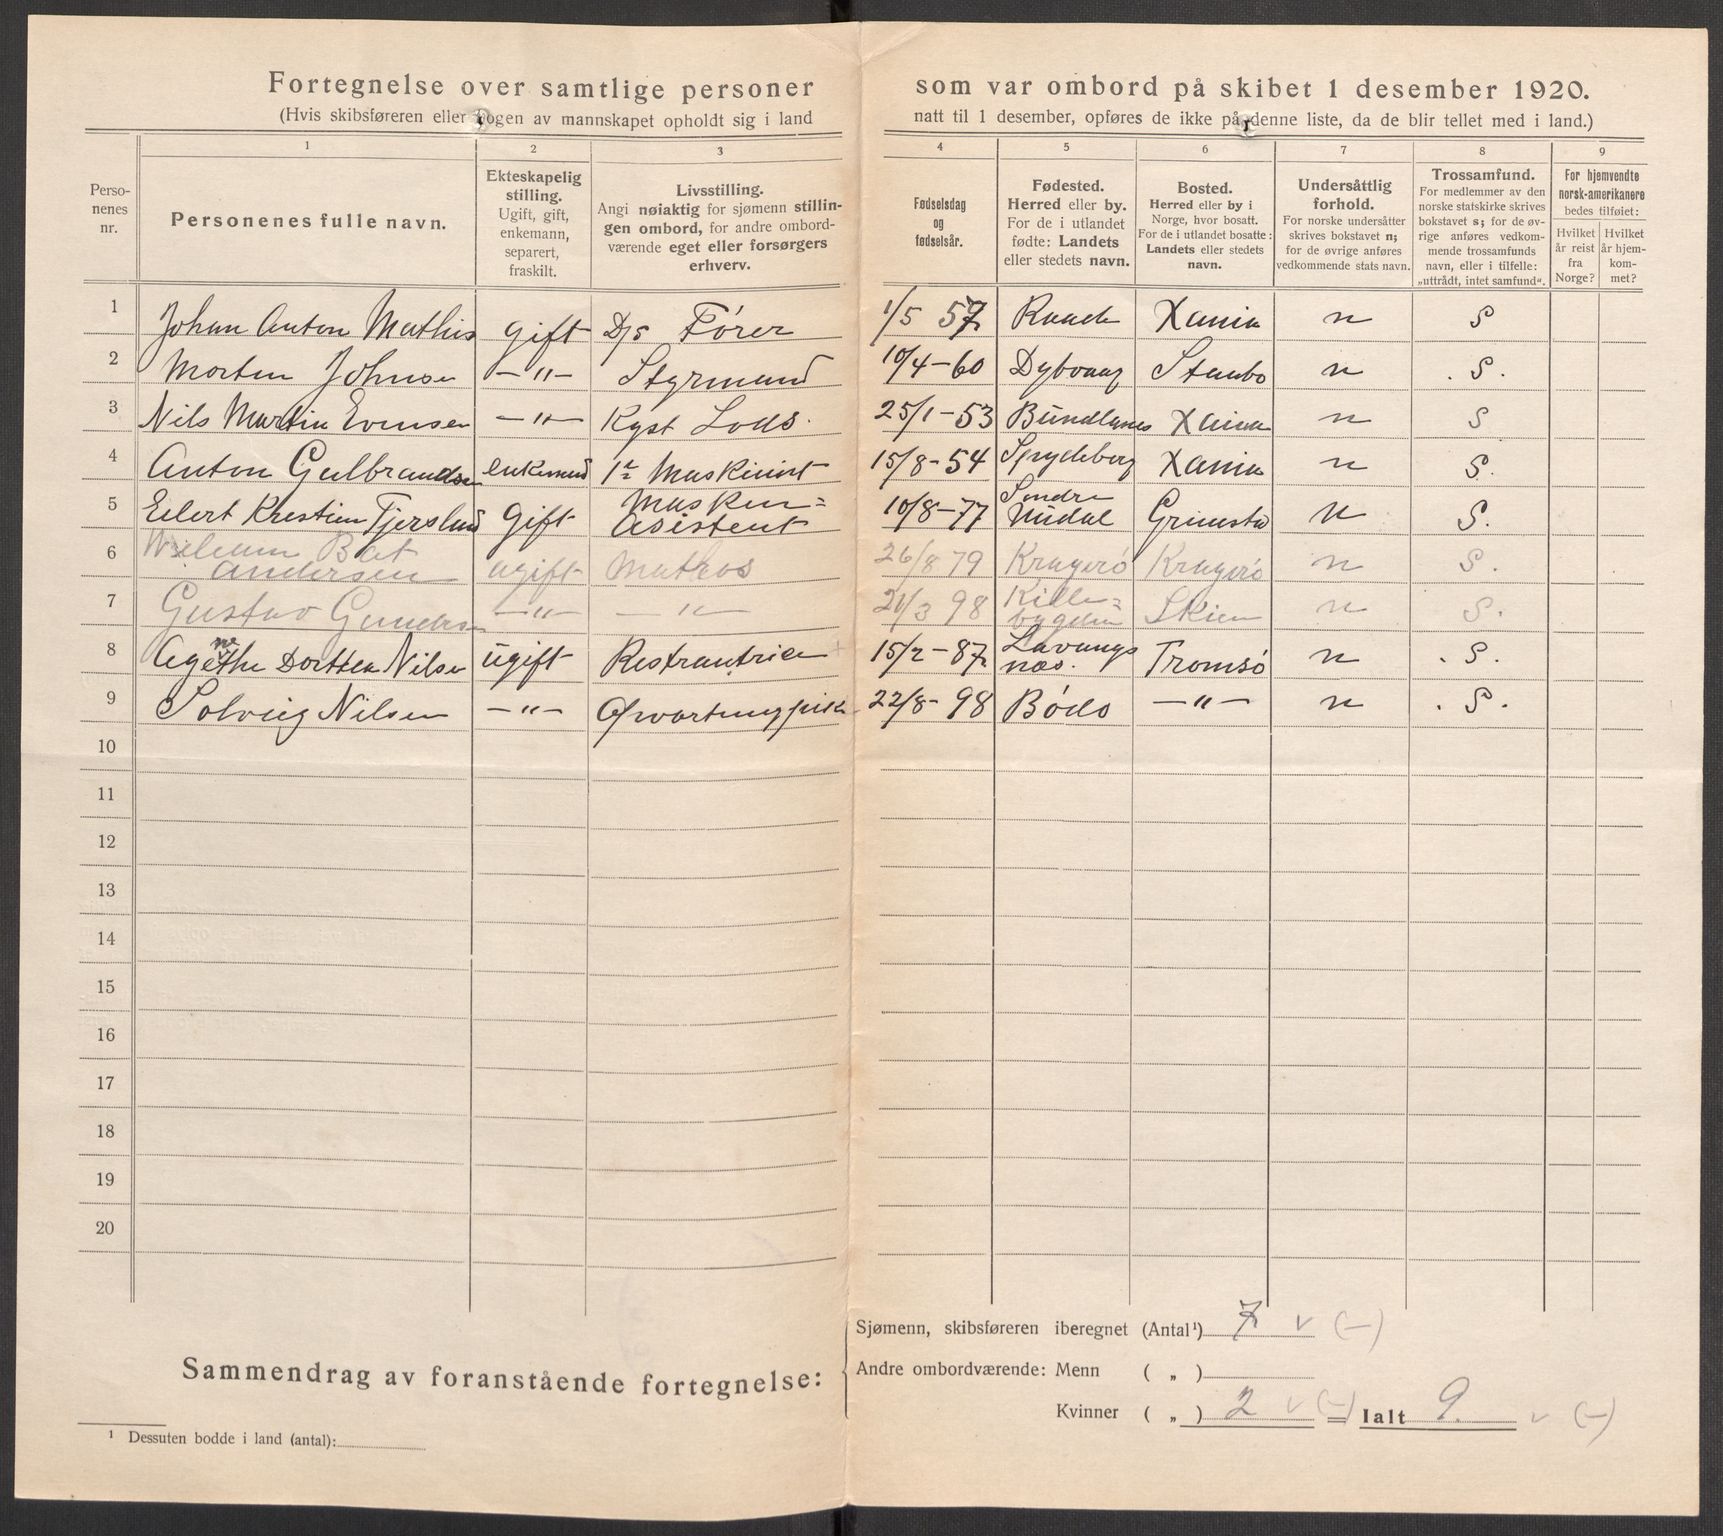 Fortegnelse over samtlige personer som var ombord på skibet 1 desember 1920.
(Hvis skibsføreren eller nogen av mannskapet opholdt sig i land natt til 1 desember, opføres de ikke på denne liste, da de blir tellet med i land.)
1 2 3 4 5 6 7 8 9
Perso-
nenes
nr.
Personenes fulle navn.
Ekteskapelig
stilling.
Ugift, gift,
enkemann,
separert,
fraskilt.
Livsstilling.
Angi nøiaktig for sjømenn stillin-
gen ombord, for andre ombord-
værende eget eller forsørgers
erhverv.
Fødselsdag
og
fødselsår.
Fødested.
Herred eller by.
For de i utlandet
fødte: Landets
eller stedets navn.
Bosted.
Herred eller by i
Norge, hvor bosatt.
For de i utlandet bosatte:
Landets eller stedets
navn.
Undersåttlig
forhold.
For norske undersåtter
skrives bokstavet n;
for de øvrige anføres
vedkommende stats navn.
Trossamfund.
For medlemmer av den
norske statskirke skrives
bokstavet s; for de øv-
rige anføres vedkom-
mende trossamfunds
navn, eller i tilfelle:
„uttrådt, intet samfund“.
For hjemvendte
norsk-amerikanere
bedes tilføiet:
Hvilket
år reist
fra
Norge?
Hvilket
år hjem-
kom-
met?
1 Johan Anton Mathis gift D/s Fører 1/5 57 Raade Xania n S
2 Morten Johnse —"— Styrmand 10/4-60 Dybvaag Staubo n S.
3 Nils Martin Evensen —"— Kyst Lods. 25/1-53 Xania n S
4 Anton Gulbrandsen enkemand 1ste Maskinist 15/8-54 Spydeberg Xania n S.
5 Eilert Kristian gift Maskin=
Asistent 10/8-77 Søndre
Undal Grimstad n S.
6 Andersen ugift Matros 26/8 79 Kragerø Kragerø n S.
7 Gustav Gundersen —"— —"— 21/3 98 Kille=
bygden Skien n S.
8 Agethe Nilsen ugift Restrautrice 15/2-87 Lavangs
næs. Tromsø n S.
9 Solveig Nilsen —"— Opvartningspike 22/8-98 Bodø —"— n S.
10
11
12
13
14
15
16
17
18
19
20
Sammendrag av foranstående fortegnelse:
Sjømenn, skibsføreren iberegnet (Antal¹) 7 v (—)
Andre ombordværende: Menn ( „ )
Kvinner ( „ ) 2 v (—) = Ialt 9. v (—)
¹ Dessuten bodde i land (antal):